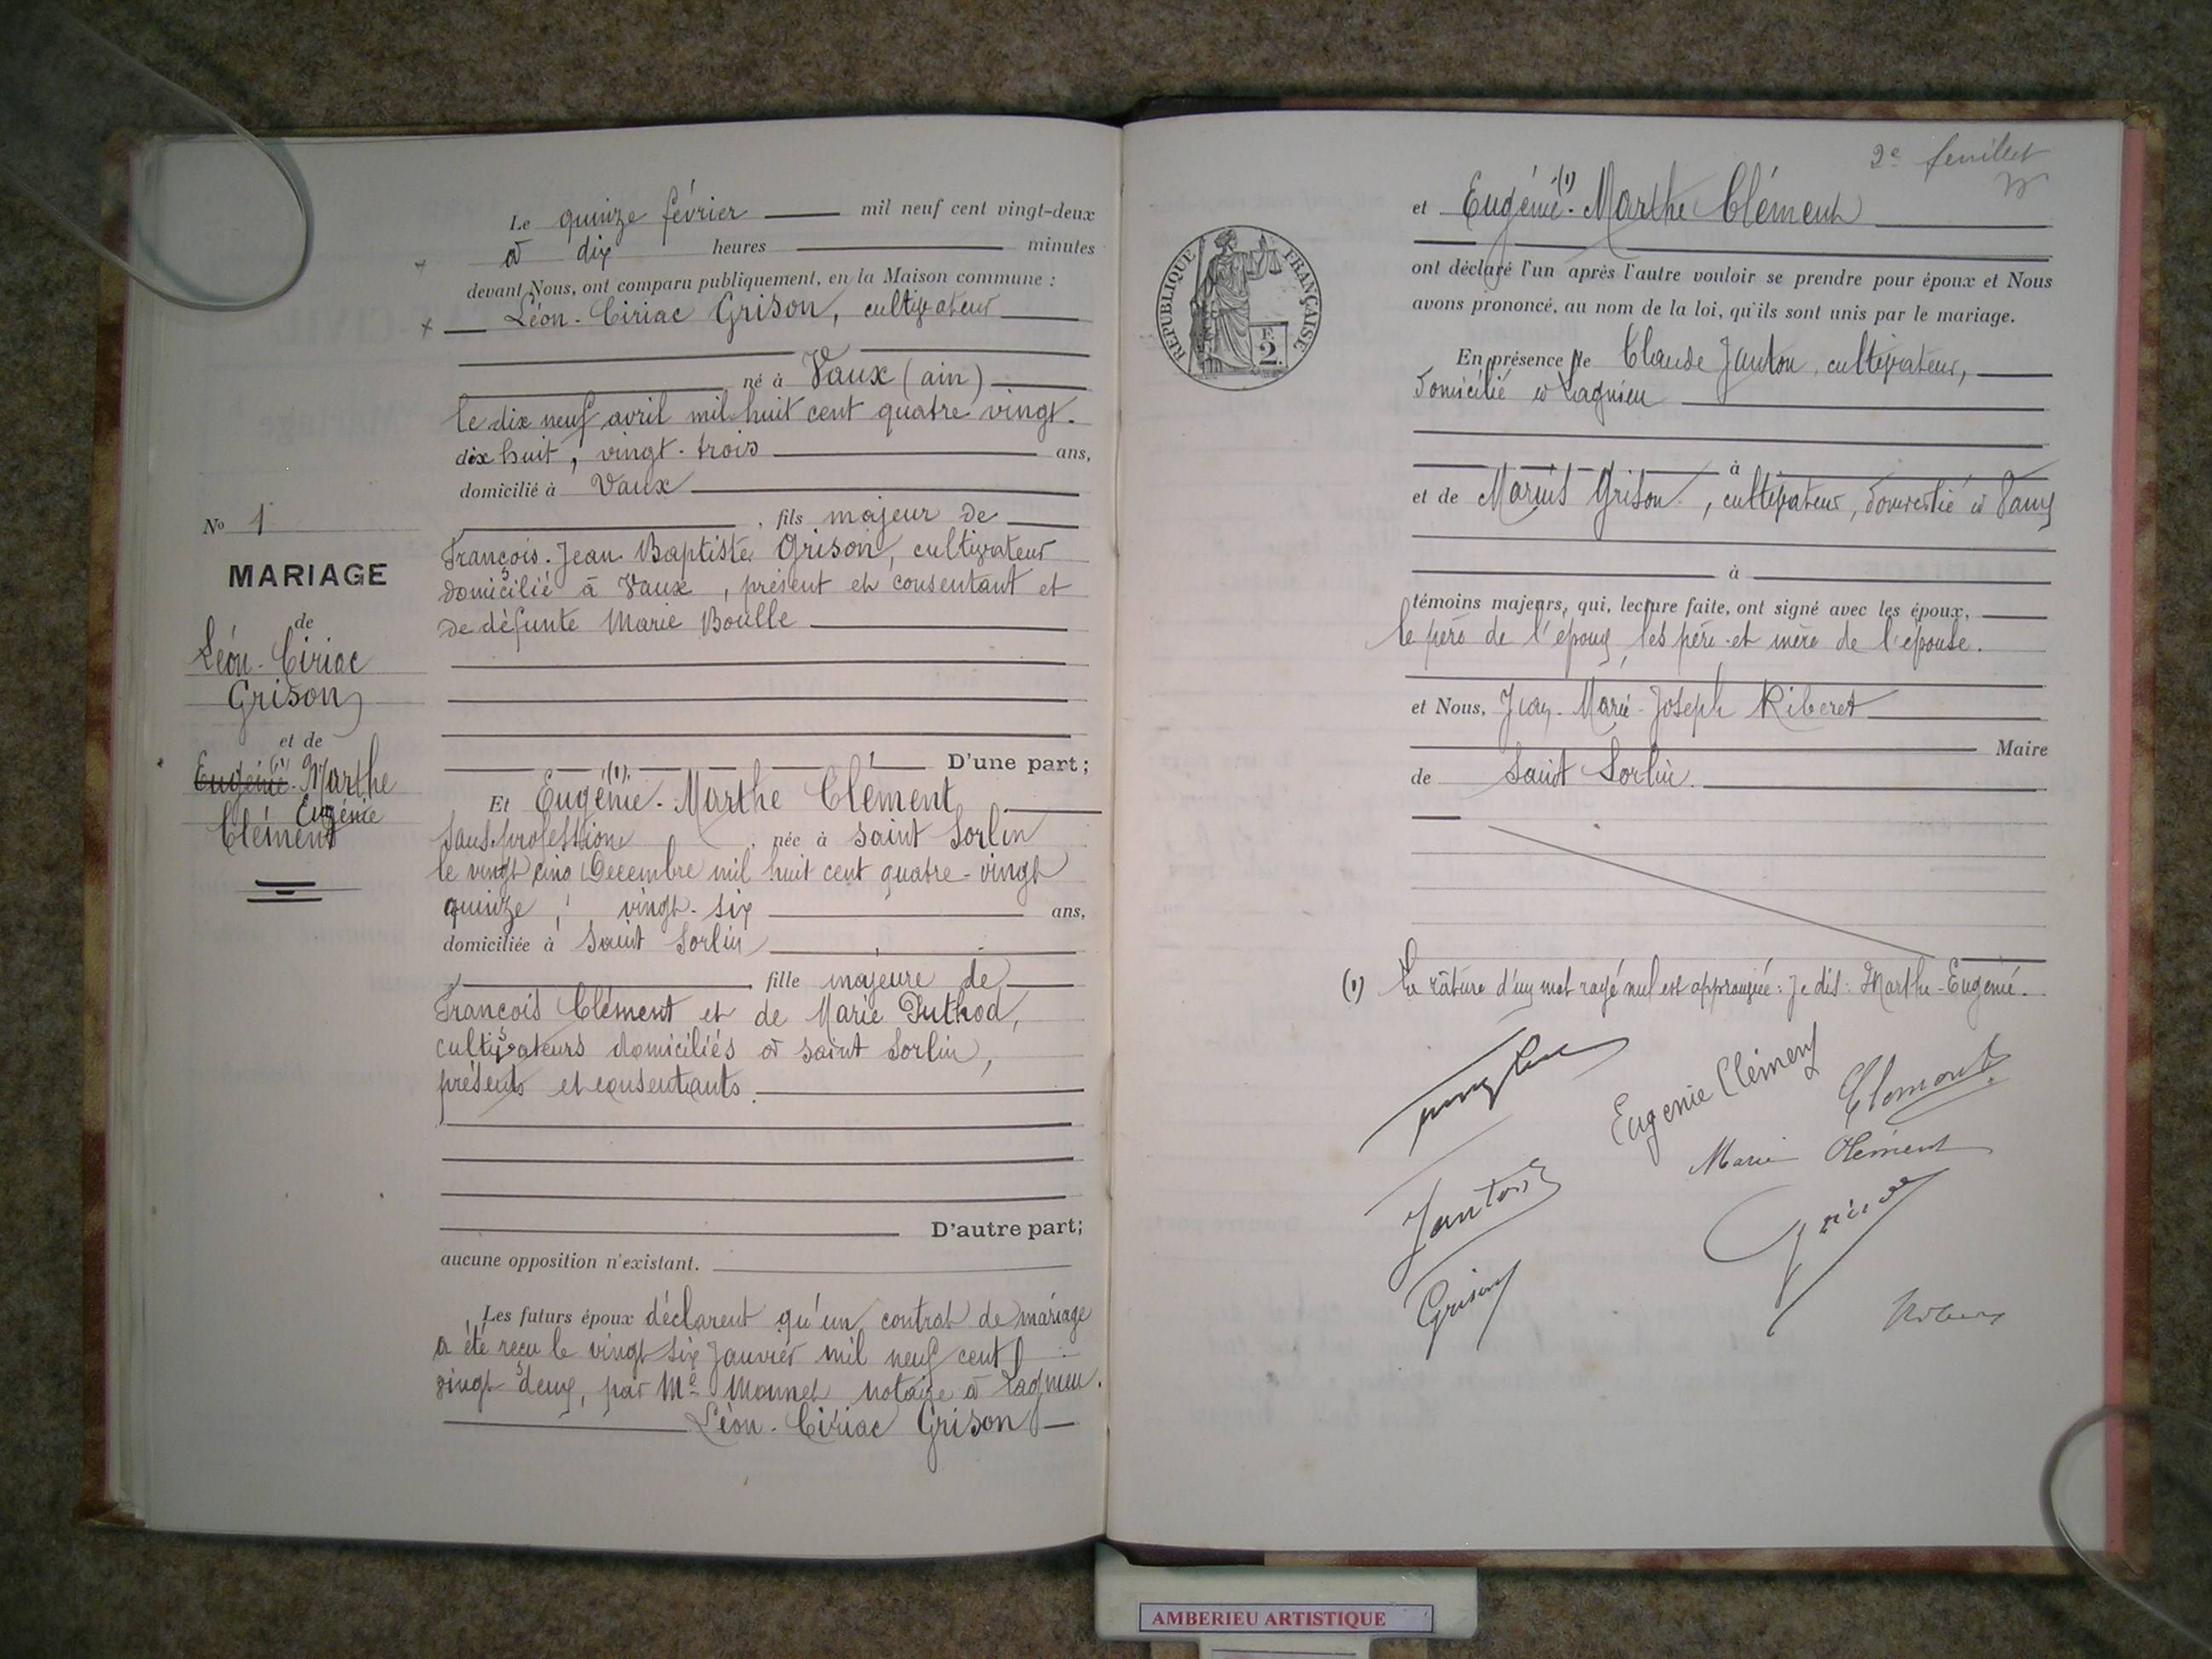 Le quinze février mil neuf cent vingt-deux
à dix heures minutes
devant Nous, ont comparu publiquement, en la Maison commune :
Léon-Ciriac Grison, cultivateur
né à Vaux (ain)
le dix neuf avril mil huit cent quatre vingt-
dix huit, vingt-trois ans,
domicilié à Vaux
, fils majeur de
François-Jean Baptiste Grison, cultivateur
domicilié à Vaux, présent et consentant et
de défunte Marie Boulle
D'une part;
Et Eugénie-(1) Marthe Clément
sans profession, née à saint Sorlin
le vingt cinq Décembre mil huit cent quatre-vingt
quinze, vingt-six ans,
domiciliée à saint Sorlin
fille majeure de
François Clément et de Marie Puthod,
cultivateurs domiciliés à saint Sorlin,
présents et consentants.
D'autre part;
aucune opposition n'existant.
Les futurs époux déclarent qu'un contrat de mariage
a été reçu le vingt six Janvier mil neuf cent
vingt deux, par Me Monnet notaire à Lagnieu.
Léon-Ciriac Grison
No 1
MARIAGE
de
Léon-Ciriac
Grison
et de
Eugénie-(1) Marthe
Eugénie
Clément
2e feuillet
RÉPUBLIQUE FRANÇAISE
F.
2.
et Eugénie-(1) Marthe Clément
ont déclaré l'un après l'autre vouloir se prendre pour époux et Nous
avons prononcé, au nom de la loi, qu'ils sont unis par le mariage.
En présence de Claude Janton, cultivateur,
domicilié à Lagnieu
à
et de Marius Grison, cultivateur, domicilié à Vaux
à
témoins majeurs, qui, lecture faite, ont signé avec les époux,
le père de l'époux, les père et mère de l'épouse.
et Nous, Jean-Marie-Joseph Riberet
Maire
de Saint Sorlin.
(1) La râture d'un mot rayé nul est approuvée : Je dis : Marthe-Eugénie.
Eugenie Clément
Clément
Marie Clément
Janton
Grison
AMBERIEU ARTISTIQUE